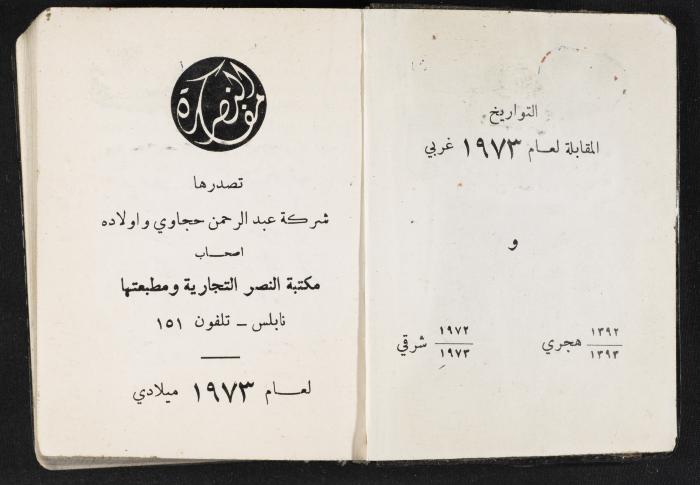 التواريخ
المقابلة لعام ١٩٧٣ غربي
و
١٣٩٢
١٣٩٣
هجري
١٩٧٢
١٩٧٣
شرقي
مفكرة النصر
تصدرها
شركة عبد الرحمن حجاوي واولاده
اصحاب
مكتبة النصر التجارية ومطبعتها
نابلس - تلفون ١٥١
لعام ١٩٧٣ ميلادي